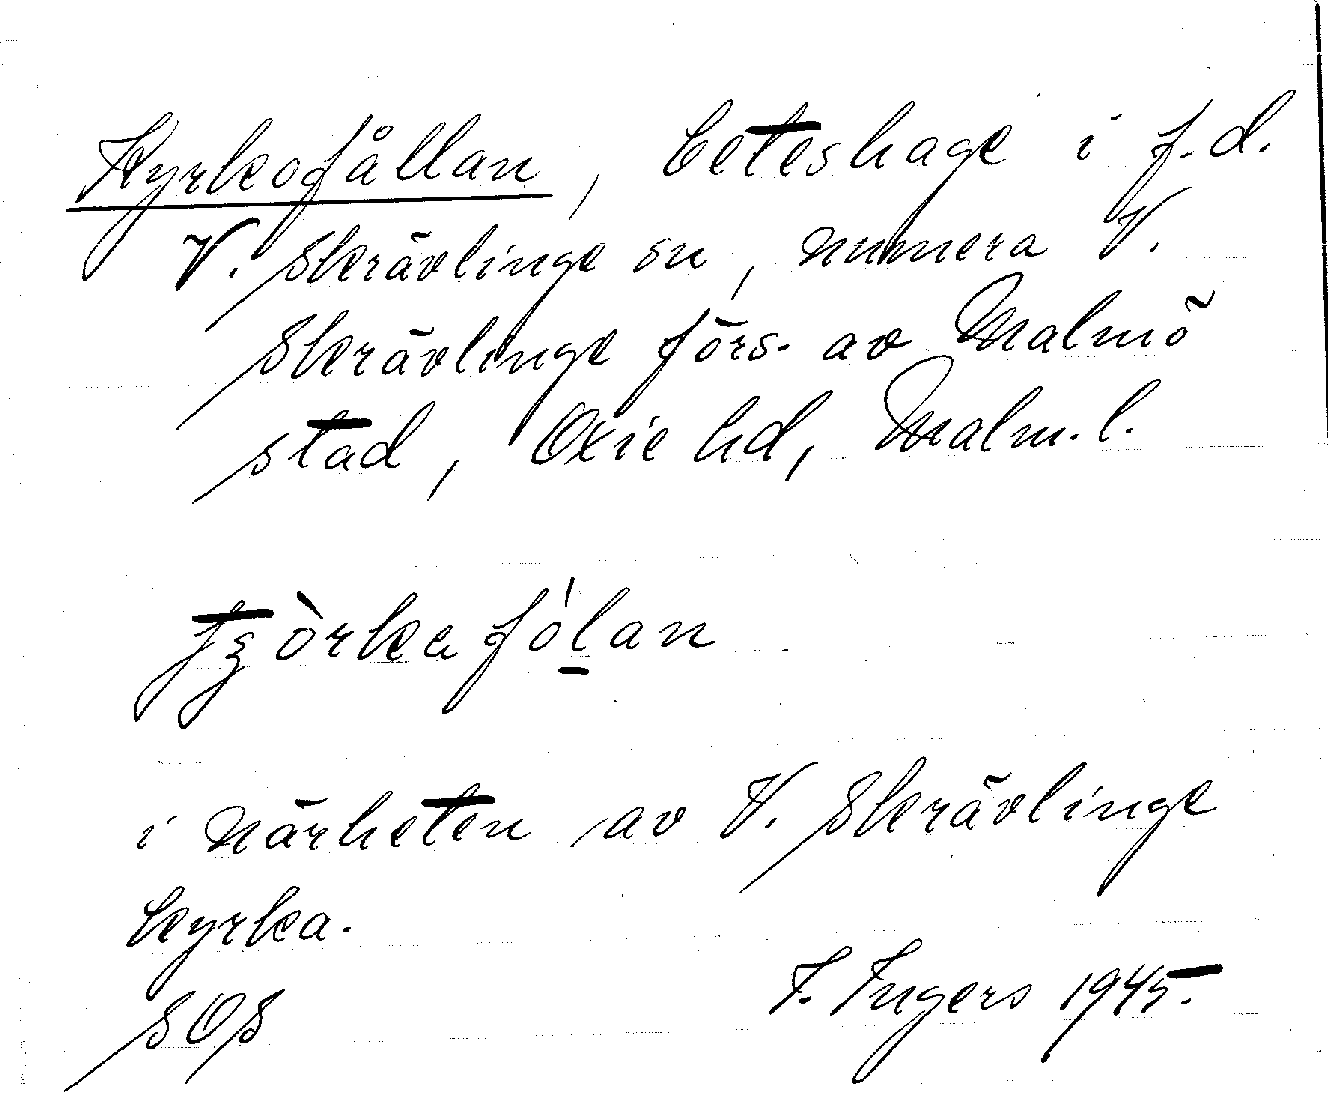 Kyrkofållan, beteshage i f.d.
V. Skrävlinge sn, numera V.
Skrävlinge förs. av Malmö
stad, Oxie hd, Malm. l.
tʒòrkafól̠an
i närheten av V. Skrävlinge
kyrka.
SOS I. Ingers 1945.